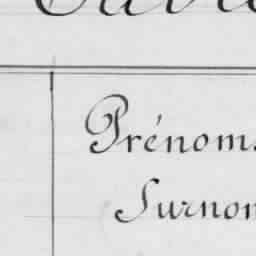 Prénoms
Surnom